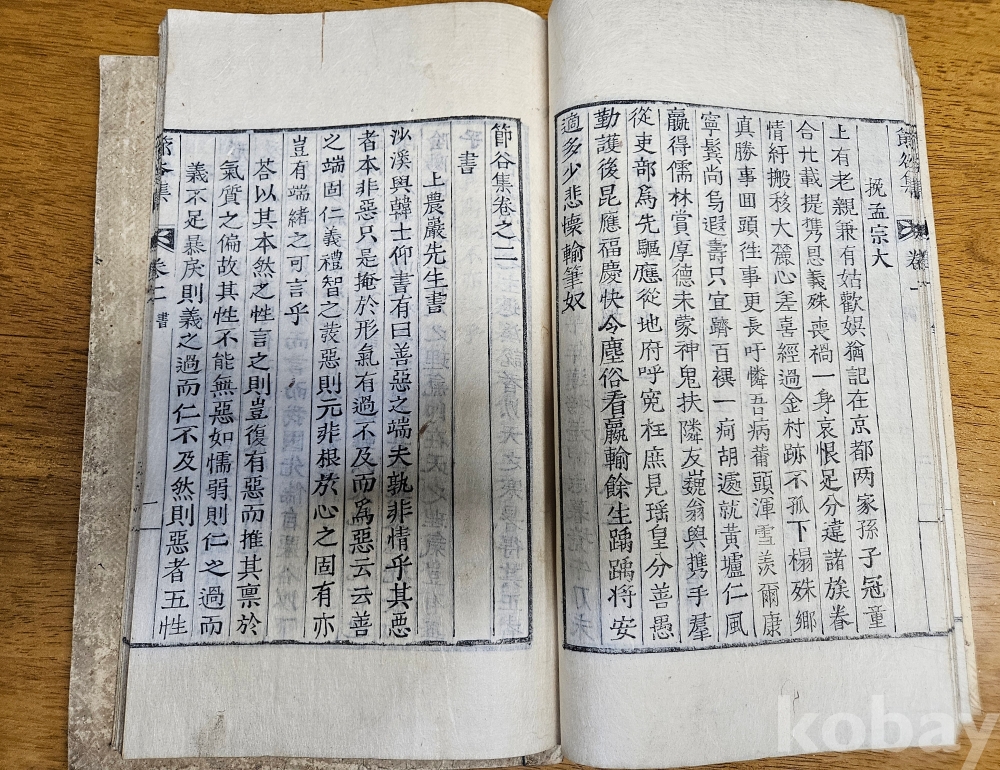 挽孟宗大
上有老親兼有姑歡娛猶記在京都两家孫子冠童
合廿載提携恩義殊喪禍一身哀恨足分違諸族眷
情紆搬移大麓心差是經過金村跡不孤下榻殊鄉
真勝事回頭徃事更長吁憐吾病蒈頭渾雪羨爾康
寧鬂尚烏遐壽只宜躋百禩一疴胡遽就黃壚仁風
贏得儒林賞厚德未蒙神鬼扶隣友巍翁輿携手羣
從吏部爲先驅應從地府呼寃枉庶見瑶皇分善愚
勤護後昆應福慶快令塵俗看贏輸餘生踽踽將安
適多少悲懷輸筆奴
節谷集 卷一
節谷集卷之二
書
上農巖先生書
沙溪與韓士仰書有曰善惡之端夫孰非情乎其惡
者本非惡只是掩於形氣有過不及而爲惡云云善
之端固仁義禮智之發惡則元非根於心之固有亦
豈有端緒之可言乎
荅以其本然之性言之則豈復有惡而推其禀於
氣質之偏故其性不能無惡如懦弱則仁之過而
義不足暴戾則義之過而仁不及然則惡者五性
節谷集 卷二 書 一
kobay